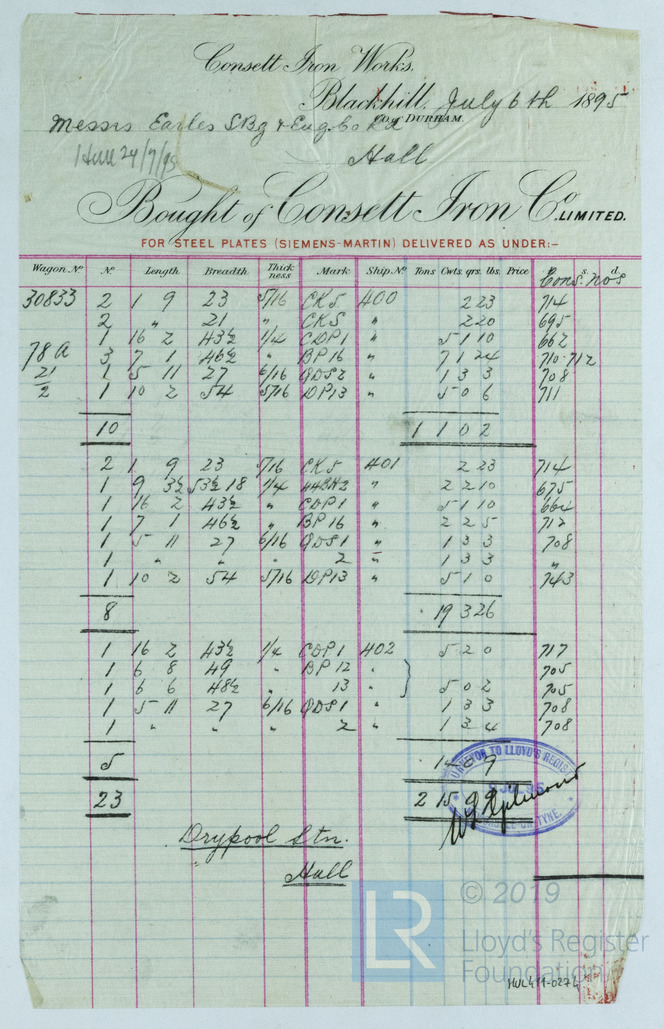 Consett Iron Works,
Blackhill, July 6th 1895
Co. DURHAM.
Messrs Earles SBg & Eng. Co Ld
Hull 24/7/95
Hull
Bought of Consett Iron Co. LIMITED.
FOR STEEL PLATES (SIEMENS-MARTIN) DELIVERED AS UNDER:-
Wagon. No No Length Breadth Thickness Mark Ship. No Tons Cwts. qrs. lbs. Price Cons. Nos s. d.
30833 2 1 9 23 5/16 CK5 400 2 23 714
2 " 21 " CK5 " 2 20 695
1 16 2 43½ 1/4 CDP1 " 5 1 10 662
78a 3 7 1 46½ " BP16 " 7 1 24 710-712
21 1 5 11 27 6/16 QDS2 " 1 3 3 708
2 1 10 2 54 5/16 DP13 " 5 0 6 711
10 1 1 0 2
2 1 9 23 5/16 CK5 401 2 23 714
1 9 3½ 53½ 18 1/4 " 2 2 10 675
1 16 2 43½ " CDP1 " 5 1 10 664
1 7 1 46½ " BP16 " 2 2 5 712
1 5 11 27 6/16 QDS1 " 1 3 3 708
1 " " " " 2 " 1 3 3 "
1 10 2 54 5/16 DP13 " 5 1 0 743
8 19 3 26
1 16 2 43½ 1/4 CDP1 402 5 2 0 717
1 6 8 49 " BP12 " 705
1 6 6 48½ " 13 " } 5 0 2 705
1 5 11 27 6/16 QDS1 " 1 3 3 708
1 " " " " 2 " 1 3 4 708
5 9
23 2 15
SURVEYOR TO LLOYD'S REGIS
Drypool Stn.
" Hull
LR
© 2019
Lloyd's Register
Foundation
HUL411-0274